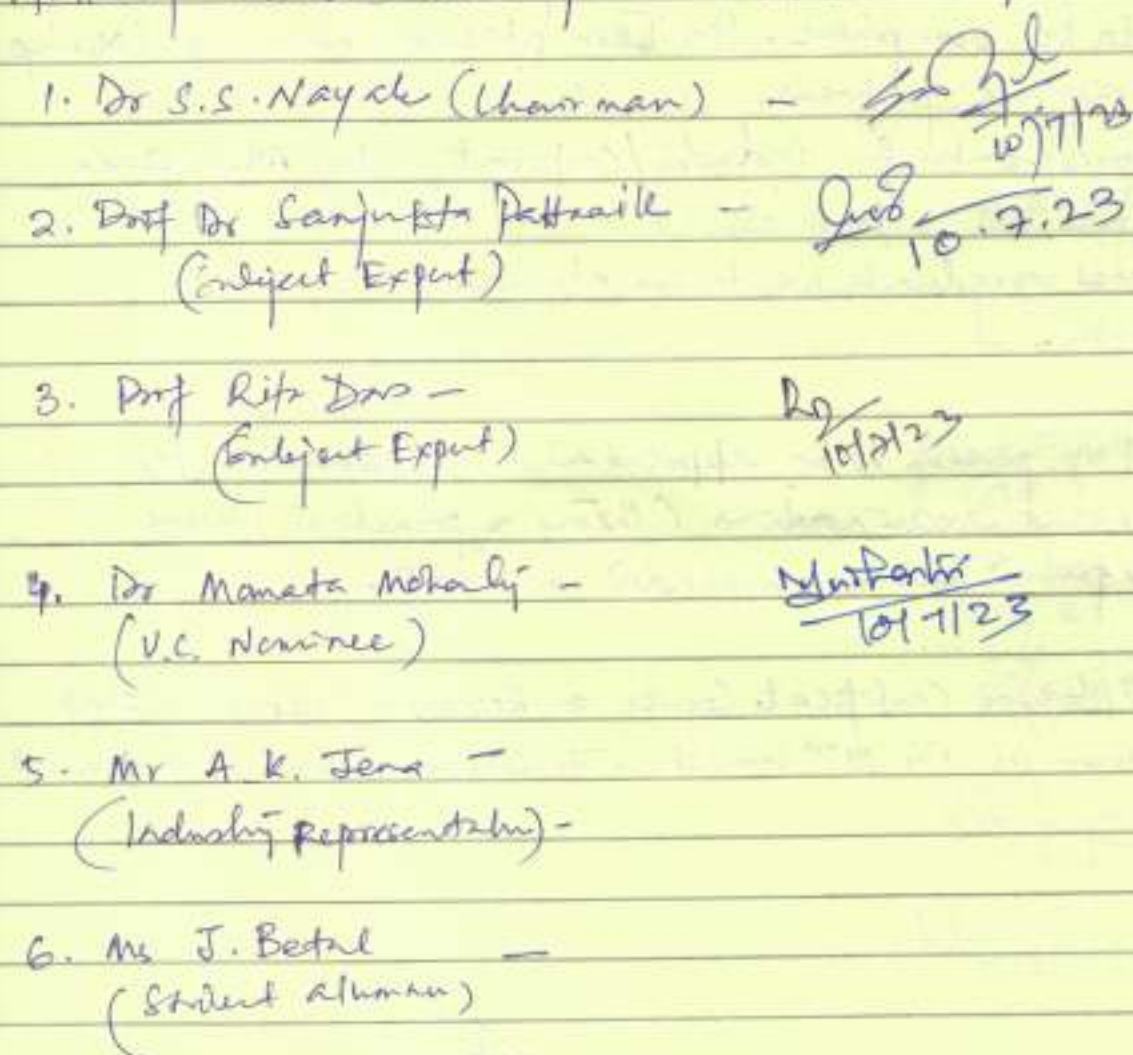 1. Dr S.S. Nayak (Chairman) - 10/7/23
2. Prof Dr Sanjukta Pattnaik - 10.7.23
(Subject Expert)
3. Prof Rita Das - 10/7/23
(Subject Expert)
4. Dr Mamata Mohanty - 10/7/23
(V.C. Nominee)
5. Mr A.K. Jena -
(Industry Representative) -
6. Ms J. Betal -
(Student alumnus)